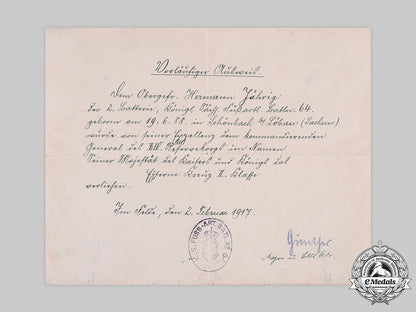 Vorläufiger Ausweis.
Dem Obergefr. Hermann
der 2. Batterie, Königl. Sächs. Fußartl. Battln. 64.
geboren am 19.6.88. in Schönbach b/Löbau (Sachsen)
wurde von seiner Exzellenz dem kommandierenden
General des Reservekorps im Namen
Seiner Majestät des Kaisers und Königs das
Eiserne Kreuz II. Klasse
verliehen.
Im Felde, den 2. Februar 1917.
K.S. FUSS-ART. BATL.
Günther
Major
eMedals